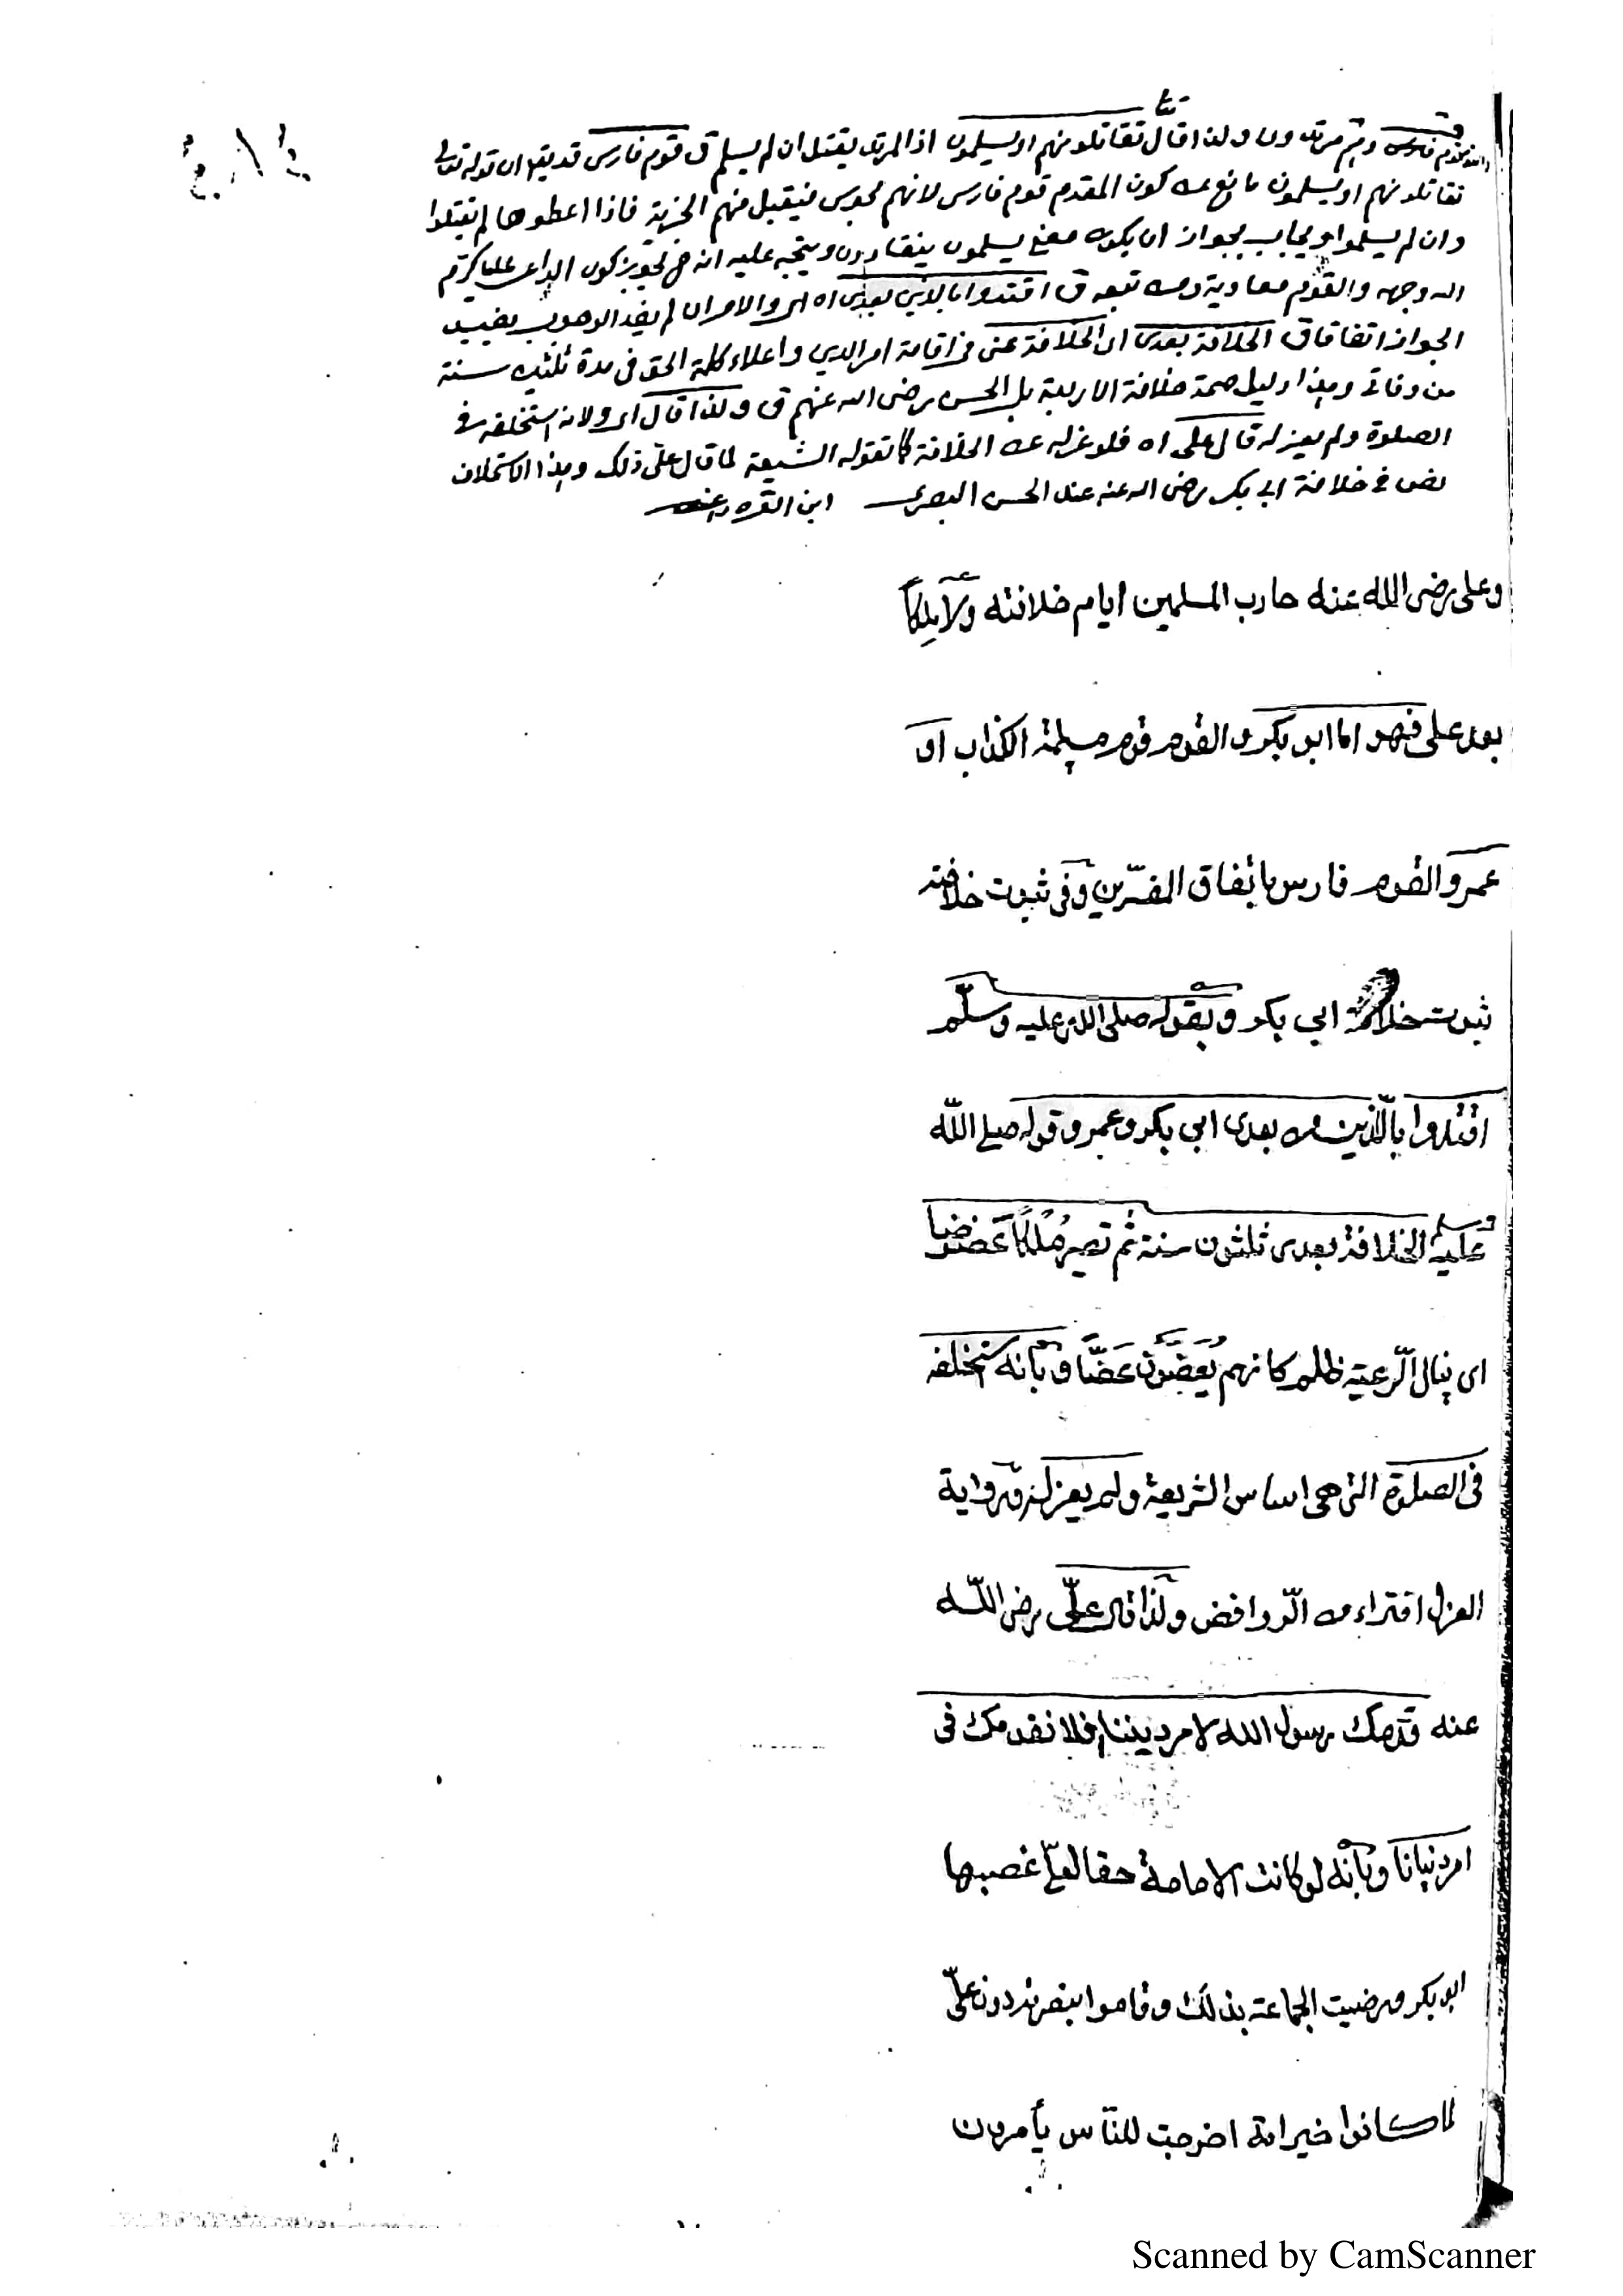 وهم مرتدون ولذا قال تقاتلونهم او يسلمون اذ المرتد يقتل ان لم يسلم ق قوم فارس قد يتوهم ان قوله تعالى
تقاتلونهم او يسلمون مانع عن كون المقدم قوم فارس لانهم مجوس فيقبل منهم الجزية فاذا اعطوها لم يقتلوا
وان لم يسلموا ويجاب بجواز ان يكون معنى يسلمون ينقادون ويتجه عليه انه ح يجوز كون الداعى عليا كرم
الله وجهه والقوم معاوية ومن تبعه ق اقتدوا بالذين بعدى اه امر والامر ان لم يفد الوجوب يفيد
الجواز اتفاقا ق الخلافة بعدى اى الخلافة عنى فى اقامة امر الدين واعلاء كلمة الحق فى مدة ثلثين سنة
من وفاتى وهذا دليل صحة خلافة الاربعة بل الحسن رضى الله عنهم ق ولذا قال اى ولانه استخلفه فى
الصلوة ولم يعزله قال على اه فلو عزله عن الخلافة كما تقوله الشيعة لما قال على ذلك وهذا الاستخلاف
نص فى خلافة ابى بكر رضى الله عنه عند الحسن البصرى ابن القره داغى
وعلى رضى الله عنه حارب المسلمين ايام خلافته ولا ملكا
بعد على فهو اما ابو بكر والقوم قوم مسيلمة الكذاب او
عمر والقوم فارس باتفاق المفسّرين وفى ثبوت خلافته
ثبوت خلافة ابى بكر وبقوله صلى الله عليه وسلّم
اقتدوا بالّذين من بعدى ابى بكر وعمر وقوله صلى اللّه
عليه وسلم الخلافة بعدى ثلثون سنة ثم تصير مُلْكًا عَضُوضا
اى ينال الرّعية ظلم كانهم يُعَضّون عَضّا وبانه استخلفه
فى الصلوة التى هى اساس الشريعة ولم يعزله ورواية
العزل افتراء من الرّوافض ولذا قال علىّ رضى اللّه
عنه قدّمك رسول الله لامر ديننا فلا نقدمك فى
امر دنيانا وبانّه لو كانت الامامة حقا لعلىّ غصبها
ابو بكر ورضيت الجماعة بذلك وقاموا بنصرته دون علىّ
لما كانوا خير امة اخرجت للنّاس يأمرون
Scanned by CamScanner